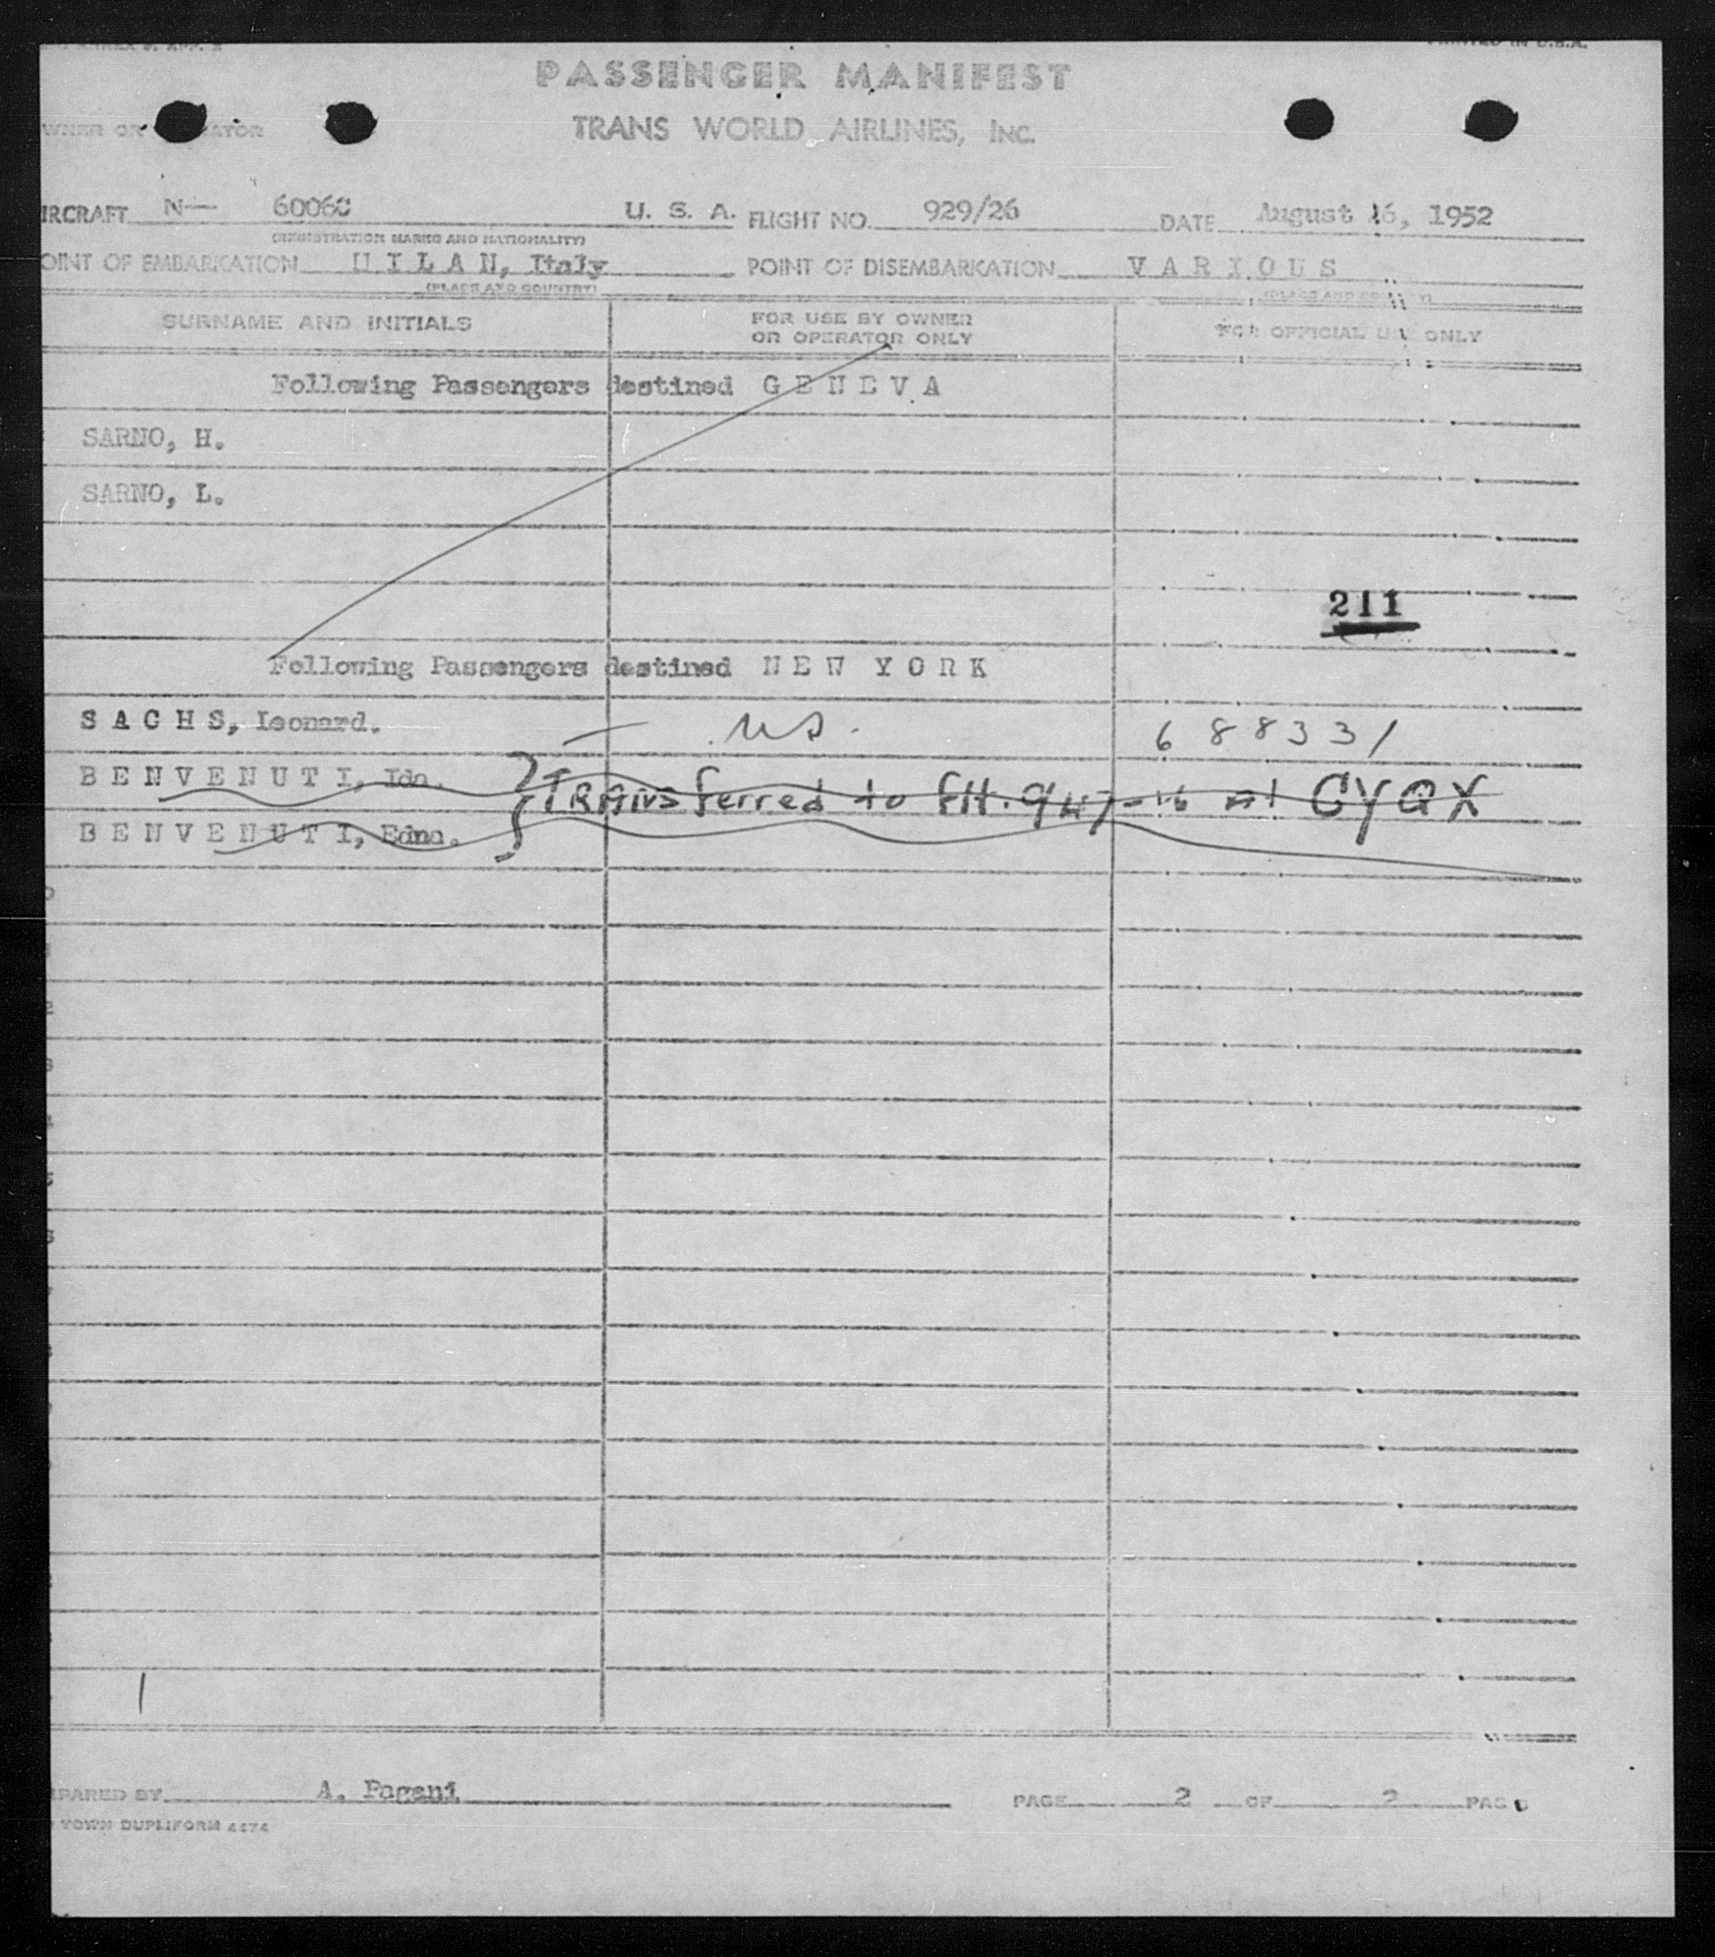 PRINTED IN U.S.A.
PASSENGER MANIFEST
TRANS WORLD AIRLINES, INC.
WNER OR ATOR
IRCRAFT N— 60060 U. S. A. FLIGHT NO. 929/26 DATE August 16, 1952
(REGISTRATION MARKS AND NATIONALITY)
OINT OF EMBARKATION MILAN, Italy POINT OF DISEMBARKATION VARIOUS
(PLACE AND COUNTRY)
SURNAME AND INITIALS FOR USE BY OWNER OR OPERATOR ONLY FOR OFFICIAL USE ONLY
Following Passengers destined GENEVA
SARNO, H.
SARNO, L.
211
Following Passengers destined NEW YORK
SACHS, Leonard. — US. 688331
BENVENUTI, Ida.
TRANSferred to Flt. 947-16 at CYQX
BENVENUTI, Edna.
PARED BY A. Pagani PAGE 2 OF 2 PAG
TOWN DUPLIFORM 4474